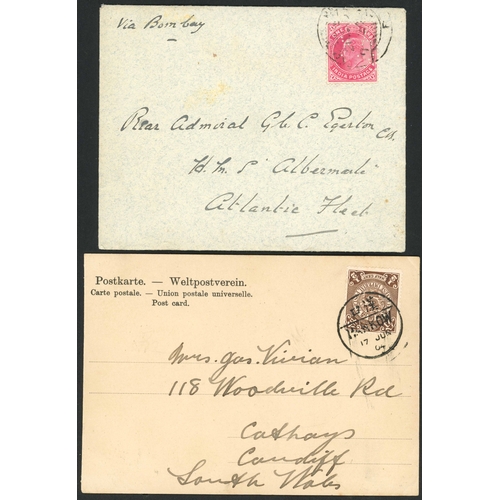 Via Bombay
INDIA POSTAGE
Rear Admiral G. C. Egerton CB.
H.M.S "Albemarle
Atlantic Fleet
Postkarte. — Weltpostverein.
Carte postale. — Union postale universelle.
Post card.
17 JUN
04
Mrs. Jas. Vivian
118 Woodville Rd
Cathays
Cardiff
South Wales